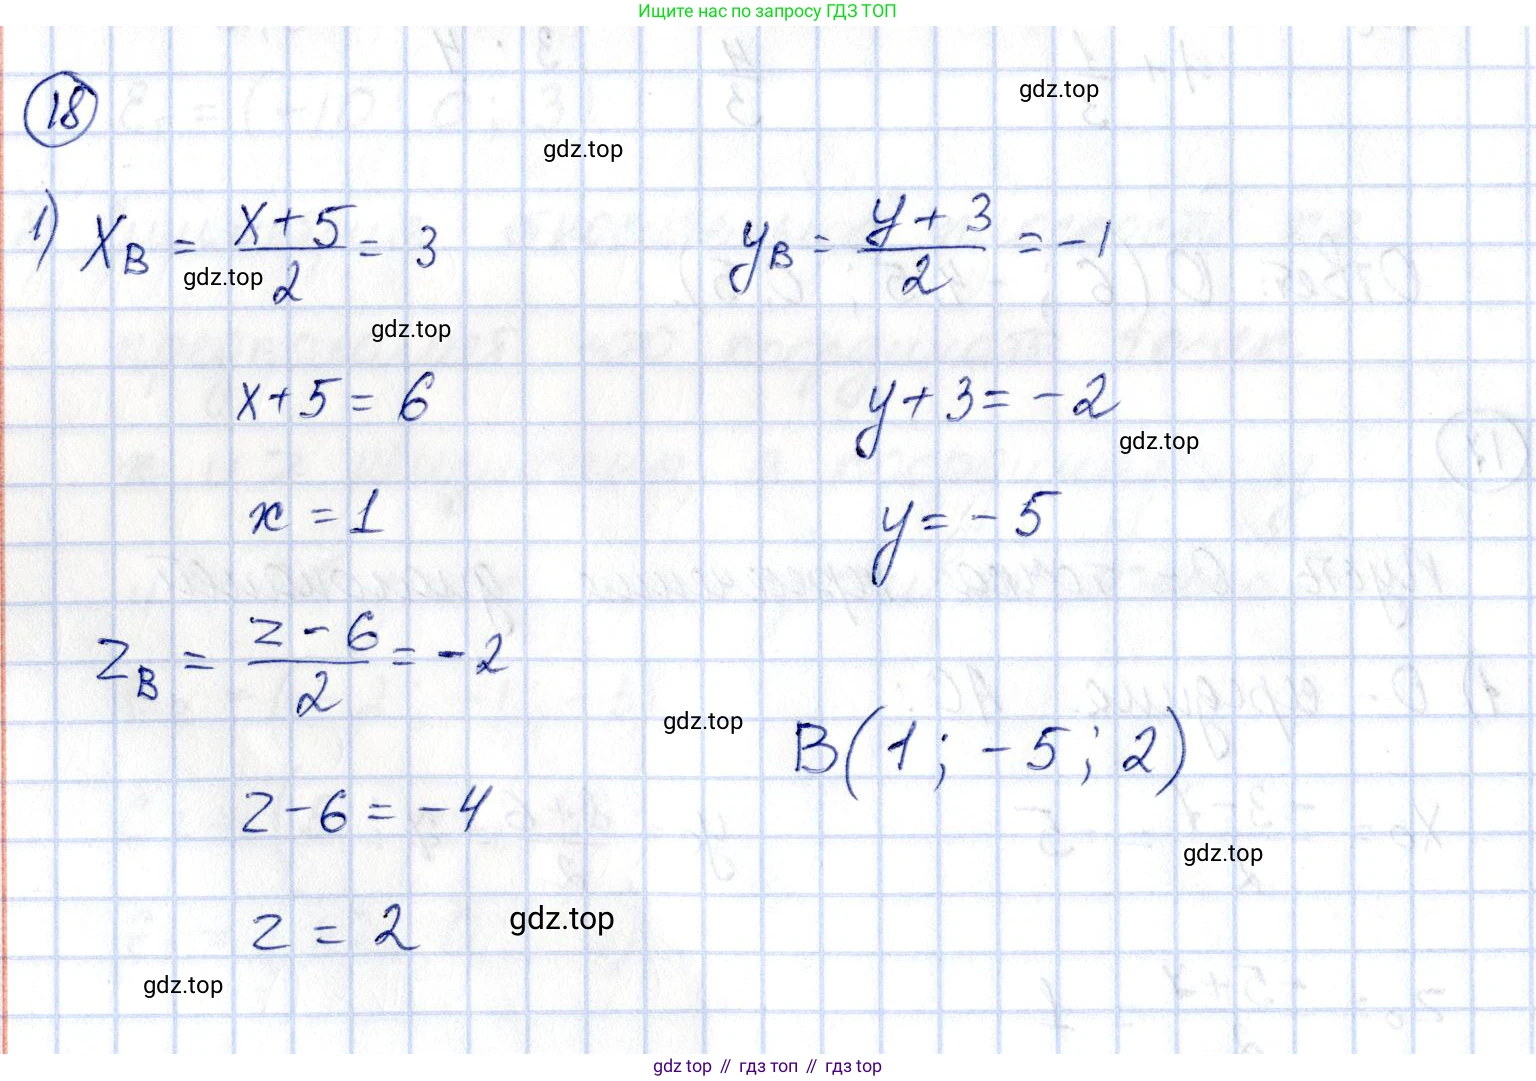 Ищите нас по запросу ГДЗ ТОП
18
gdz.top
gdz.top
1) x_B = (x + 5)/2 = 3
y_B = (y + 3)/2 = -1
gdz.top
gdz.top
x + 5 = 6
y + 3 = -2
gdz.top
x = 1
y = -5
z_B = (z - 6)/2 = -2
gdz.top
B(1; -5; 2)
z - 6 = -4
gdz.top
z = 2
gdz.top
gdz.top
gdz top // гдз топ // гdz.top